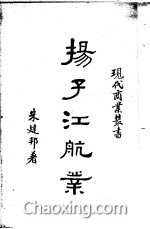 現代商業叢書
揚子江航業
朱建邦著
Chaoxing.com